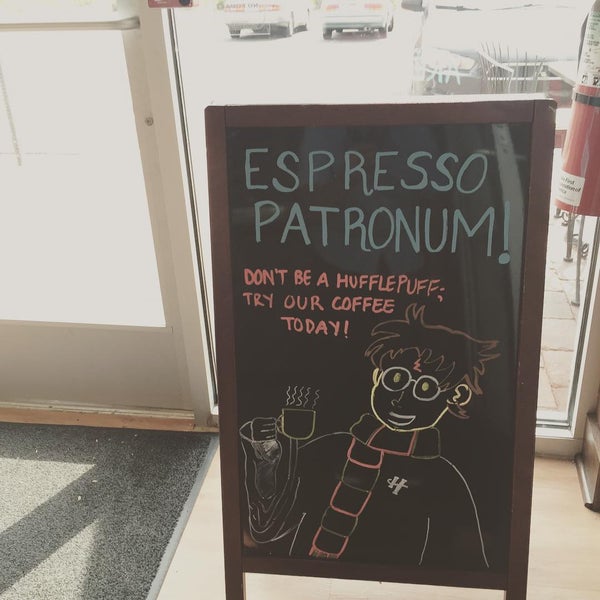 ESPRESSO
PATRONUM!
DON'T BE A HUFFLEPUFF;
TRY OUR COFFEE
TODAY!
H